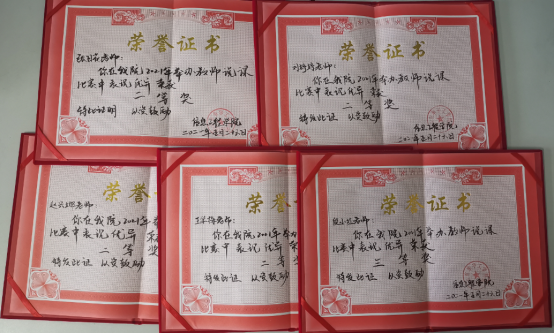 荣誉证书
老师:
你在我院2021年举办教师说课
比赛中表现优异 荣获
二等奖
特此证明 以资鼓励
信息工程学院
二〇二一年五月二十六日
荣誉证书
刘婷婷老师:
你在我院2021年举办教师说课
比赛中表现优异 荣获
二等奖
特发此证 以资鼓励
信息工程学院
二〇二一年五月二十六日
荣誉证书
老师:
你在我院2021年
比赛中表现优异 荣获
二等奖
特发此证 以资鼓励
荣誉证书
老师:
你在我院2021年举办
比赛中表现优异 荣获
二等奖
特发此证 以资鼓励
荣誉证书
老师:
你在我院2021年举办教师说课
比赛中表现优异 荣获
三等奖
特发此证 以资鼓励
信息工程学院
二〇二一年五月二十六日